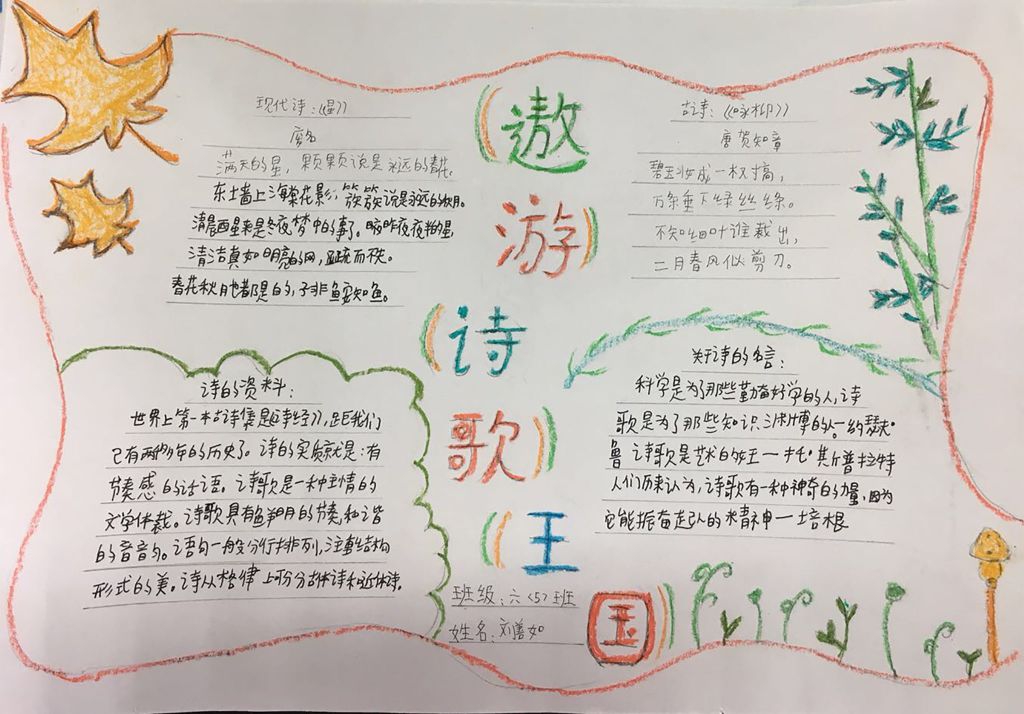 遨
游
诗
歌
王
国
现代诗:《星》
废名
满天的星,颗颗说是永远的春花。
东土墙上海棠花影,簇簇说是永远的秋月。
清晨醒来是冬夜梦中的事了。
昨夜夜的星
清洁真如明亮的网,疏而不失。
春花秋月也都是的,子非鱼安知鱼。
古诗:《咏柳》
唐贺知章
碧玉妆成一树高,
万条垂下绿丝绦。
不知细叶谁裁出,
二月春风似剪刀。
诗的资料:
世界上第一本古诗集是《诗经》,距我们
已有两千多年的历史了。诗的实质就是:有
节奏感的话语。诗歌是一种主情的
文学体裁。诗歌具有鲜明的节奏,和谐
的音韵。语句一般分行排列,注重结构
形式的美。诗从格律上可分古体诗和近体诗。
关于诗的名言:
科学是为了那些勤奋好学的人,诗
歌是为了那些知识渊博的人。—约瑟夫·
鲁 诗歌是艺术的女王—托·斯普拉特
人们历来认为,诗歌有一种神奇的力量,因为
它能振奋起人的精神—培根
班级:六<5>班
姓名:刘善如